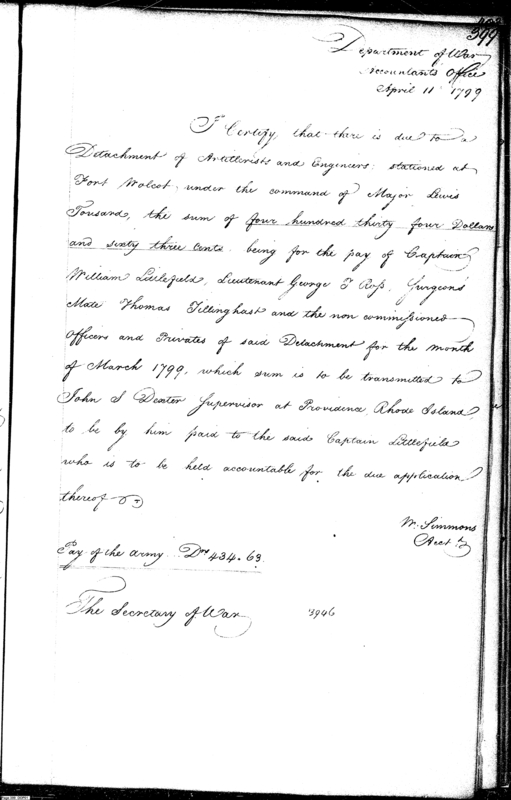 399
Department of War
Accountants Office
April 11 1799
I Certify that there is due to a
Detachment of Artillerists and Engineers, stationed at
Fort Wolcot, under the command of Major Lewis
Tousard, the sum of four hundred thirty four Dollars
and sixty three Cents, being for the pay of Captain
William Littlefield, Lieutenant George T Ross, Surgeons
Mate Thomas Tillinghast and the non commissioned
Officers and Privates of said Detachment for the month
of March 1799, which sum is to be transmitted to
John S Dexter Supervisor at Providence, Rhode Island,
to be by him paid to the said Captain Littlefield
who is to be held accountable for the due application
thereof
W. Simmons
Acct
Pay of the Army Drs 434.63
The Secretary of War
3946